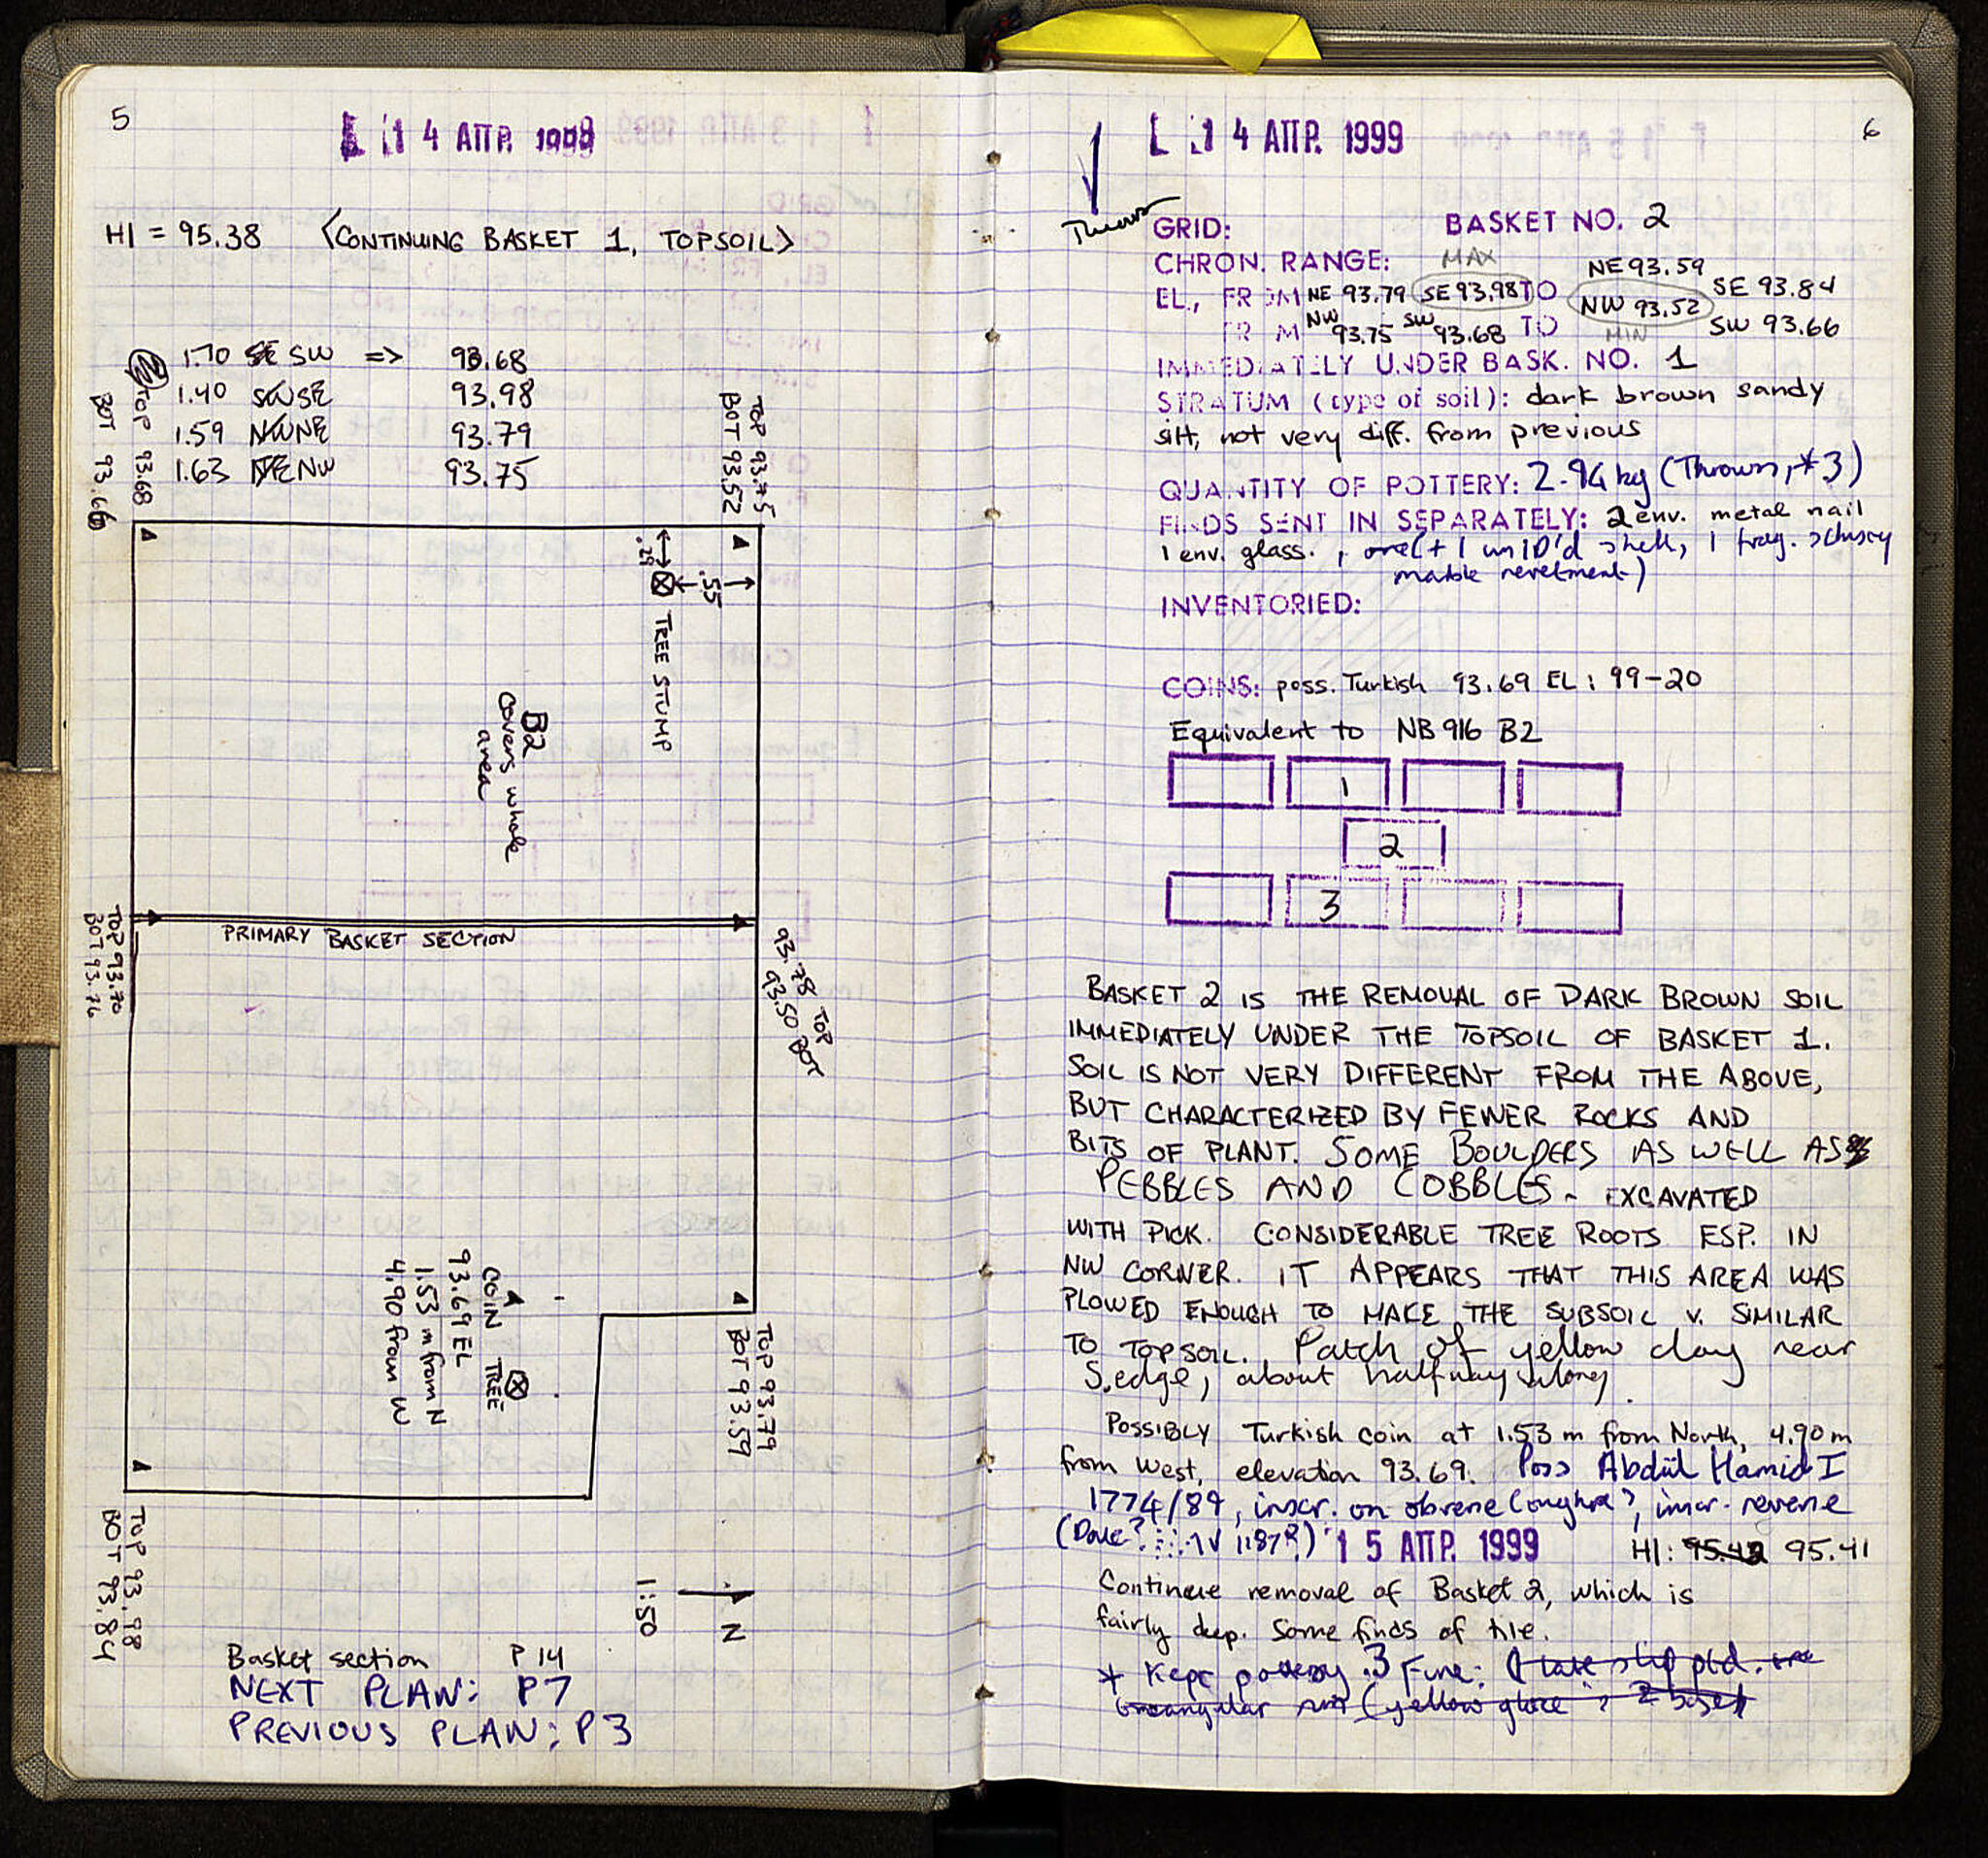 5
14 ΑΠΡ. 1999
HI = 95.38 <CONTINUING BASKET 1, TOPSOIL>
1.70 SW => 93.68
1.40 SE 93.98
1.59 NE 93.79
1.63 NW 93.75
TOP 93.68
BOT 93.66
TOP 93.75
BOT 93.52
.29
.55
TREE STUMP
B2
covers whole
area
PRIMARY BASKET SECTION
TOP 93.70
BOT 93.76
93.78 TOP
93.50 BOT
COIN
93.69 EL
1.53 m from N
4.90 from W
TREE
TOP 93.79
BOT 93.59
TOP 93.98
BOT 93.84
1:50
N
Basket section P 14
NEXT PLAN: P7
PREVIOUS PLAN: P3
6
14 ΑΠΡ. 1999
GRID: BASKET NO. 2
CHRON. RANGE: MAX NE 93.59
EL., FROM NE 93.79 SE 93.98 TO NW 93.52 SE 93.84
FROM NW 93.75 SW 93.68 TO MIN SW 93.66
IMMEDIATELY UNDER BASK. NO. 1
STRATUM (type of soil): dark brown sandy
silt, not very diff. from previous
QUANTITY OF POTTERY: 2.94 kg (Thrown, *3)
FINDS SENT IN SEPARATELY: 2 env. metal nail
1 env. glass. , + 1 unID'd shell, 1 frag.
marble revetment)
INVENTORIED:
COINS: poss. Turkish 93.69 EL : 99-20
Equivalent to NB 916 B2
1
2
3
BASKET 2 IS THE REMOVAL OF DARK BROWN SOIL
IMMEDIATELY UNDER THE TOPSOIL OF BASKET 1.
SOIL IS NOT VERY DIFFERENT FROM THE ABOVE,
BUT CHARACTERIZED BY FEWER ROCKS AND
BITS OF PLANT. SOME BOULDERS AS WELL AS
PEBBLES AND COBBLES - EXCAVATED
WITH PICK. CONSIDERABLE TREE ROOTS ESP. IN
NW CORNER. IT APPEARS THAT THIS AREA WAS
PLOWED ENOUGH TO MAKE THE SUBSOIL V. SIMILAR
TO TOPSOIL. Patch of yellow clay near
S. edge, about halfway along.
POSSIBLY Turkish coin at 1.53 m from North, 4.90 m
from West, elevation 93.69. Poss Abdül Hamid I
1774/89, inscr. on obverse , inscr. reverse
(Date? 1187?) 15 ΑΠΡ. 1999 HI: 95.41
Continue removal of Basket 2, which is
fairly deep. Some finds of tile.
* Kept pottery .3 Fine: (1 late slip ptd.
(yellow glaze 2 bases